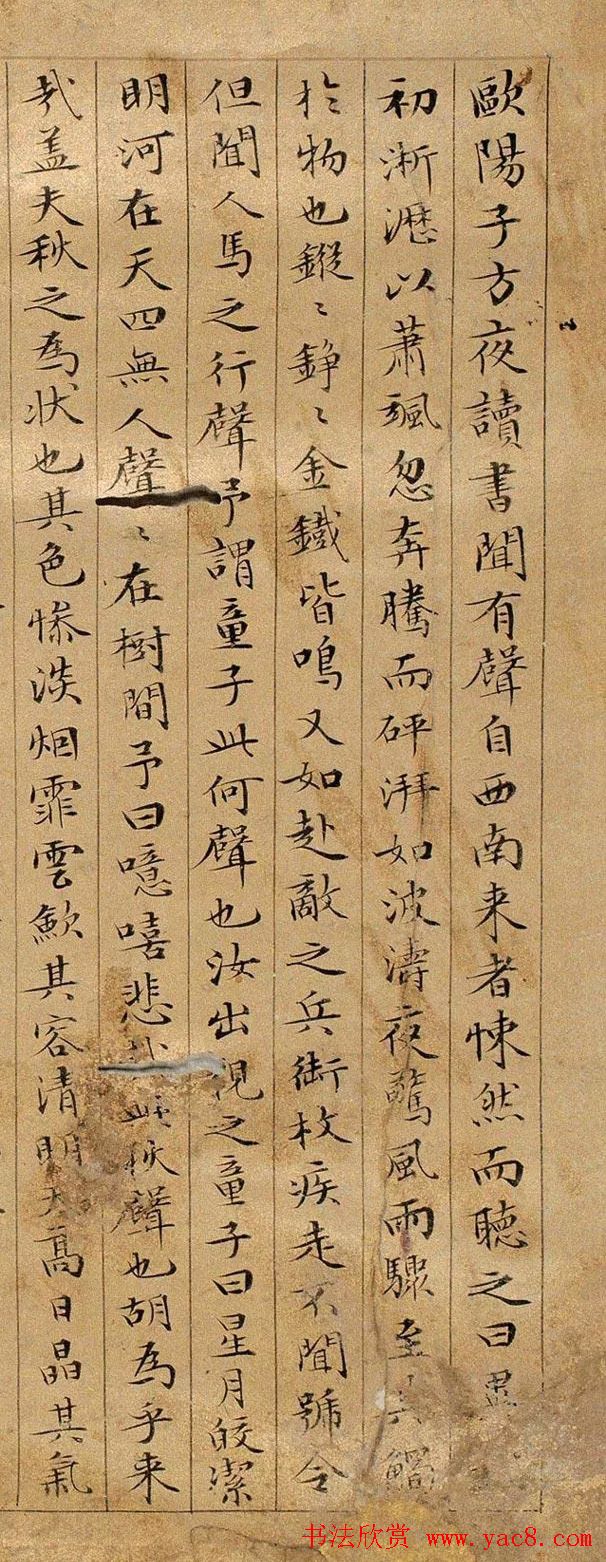 歐陽子方夜讀書聞有聲自西南来者悚然而聴之曰異
初淅瀝以蕭颯忽奔騰而砰湃如波濤夜驚風雨驟至其觸
扵物也鏦〻錚〻金鐵皆鳴又如赴敵之兵銜枚疾走不聞號令
但聞人馬之行聲予謂童子此何聲也汝出視之童子曰星月皎潔
明河在天四無人聲〻在樹間予曰噫嘻悲此秋聲也胡為乎来
㢤盖夫秋之為状也其色惨淡烟霏雲歛其容清明天高日晶其氣
书法欣赏 www.yac8.com